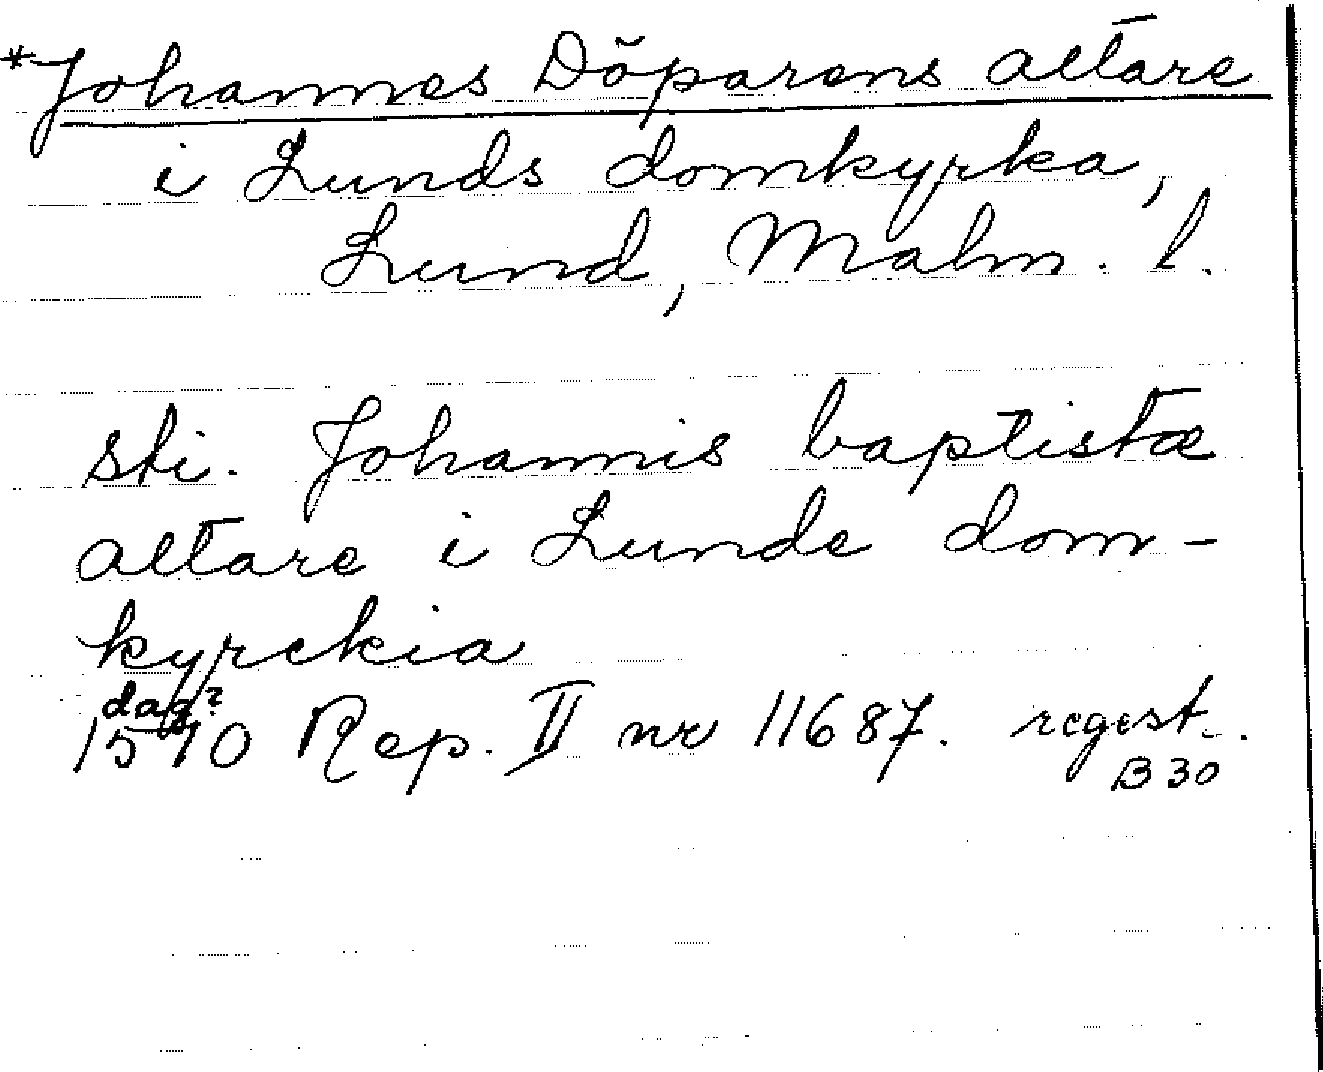 *Johannes Döparens altare
i Lunds domkyrka,
Lund, Malm. l.
sti. Johannis baptistæ
altare i Lunde dom-
kyrckia
dag?
1510 Rep. II nr 11687. regest.
B 30